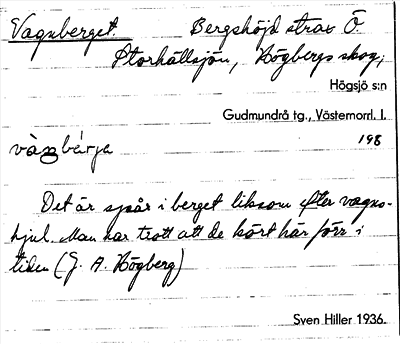 Vagnsberget. Bergshöjd strax Ö.
Storhällsjön, Högbergs skog,
Högsjö s:n
Gudmundrå tg., Västernorrl. l.
198
Det är spår i berget liksom efter vagns-
hjul. Man har trott att de kört här förr i
tiden (J. A. Högberg)
Sven Hiller 1936.